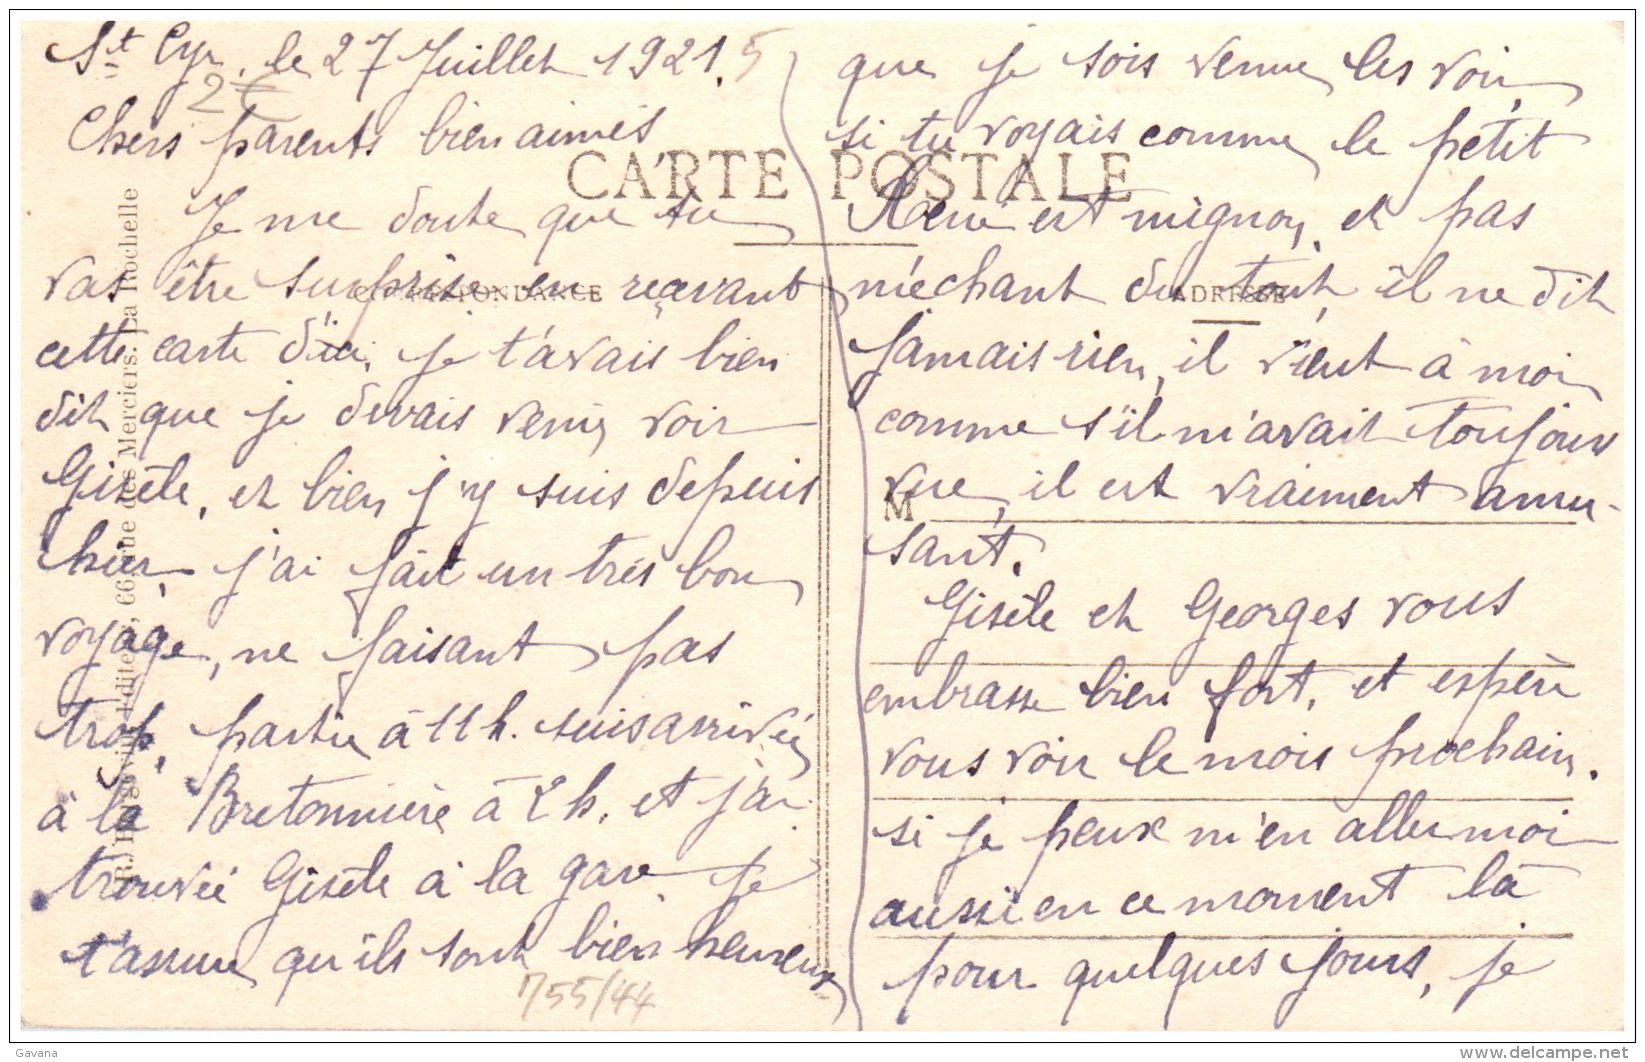 St Cyr, le 27 Juillet 1921.
5
2€
Chers parents bien aimés
Je me doute que tu
vas être surprise en recevant
cette carte d'ici, je t'avais bien
dit que je devais venir voir
Gisèle, et bien j'y suis depuis
hier, j'ai fait un très bon
voyage, ne faisant pas
trop, partie à 11 h. suis arrivée
à la Bretonnière à 2 h. et j'ai
trouvée Gisèle à la gare. Je
t'assure qu'ils sont bien heureux
755/44
que je sois venue les voir,
si tu voyais comme le petit
René est mignon, et pas
méchant du tout, il ne dit
jamais rien, il vient à moi
comme s'il m'avait toujours
vue, il est vraiment amu-
sant.
Gisèle et Georges vous
embrasse bien fort, et espère
vous voir le mois prochain.
si je peux m'en aller moi
aussi en ce moment là
pour quelques jours, je
CARTE POSTALE
CORRESPONDANCE
ADRESSE
M
Editeur, 66, rue des Merciers. La Rochelle
Gavana
delcampe.net